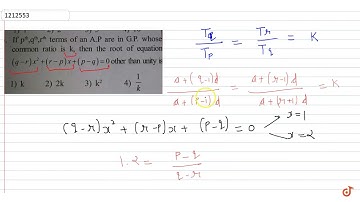 1212553
If pᵗʰ,qᵗʰ,rᵗʰ terms of an A.P are in G.P. whose
common ratio is k, then the root of equation
(q−r)x²+(r−p)x+(p−q)=0 other than unity is
1) k 2) 2k 3) k² 4) 1/k
Tq/Tp = Tr/Tq = K
a+(q-1)d / a+(p-1)d = a+(r-1)d / a+(r+1)d = K
(q-r)x² + (r-p)x + (p-q) = 0
x=1
x=2
1.2 = p-q / q-r
doubtnut